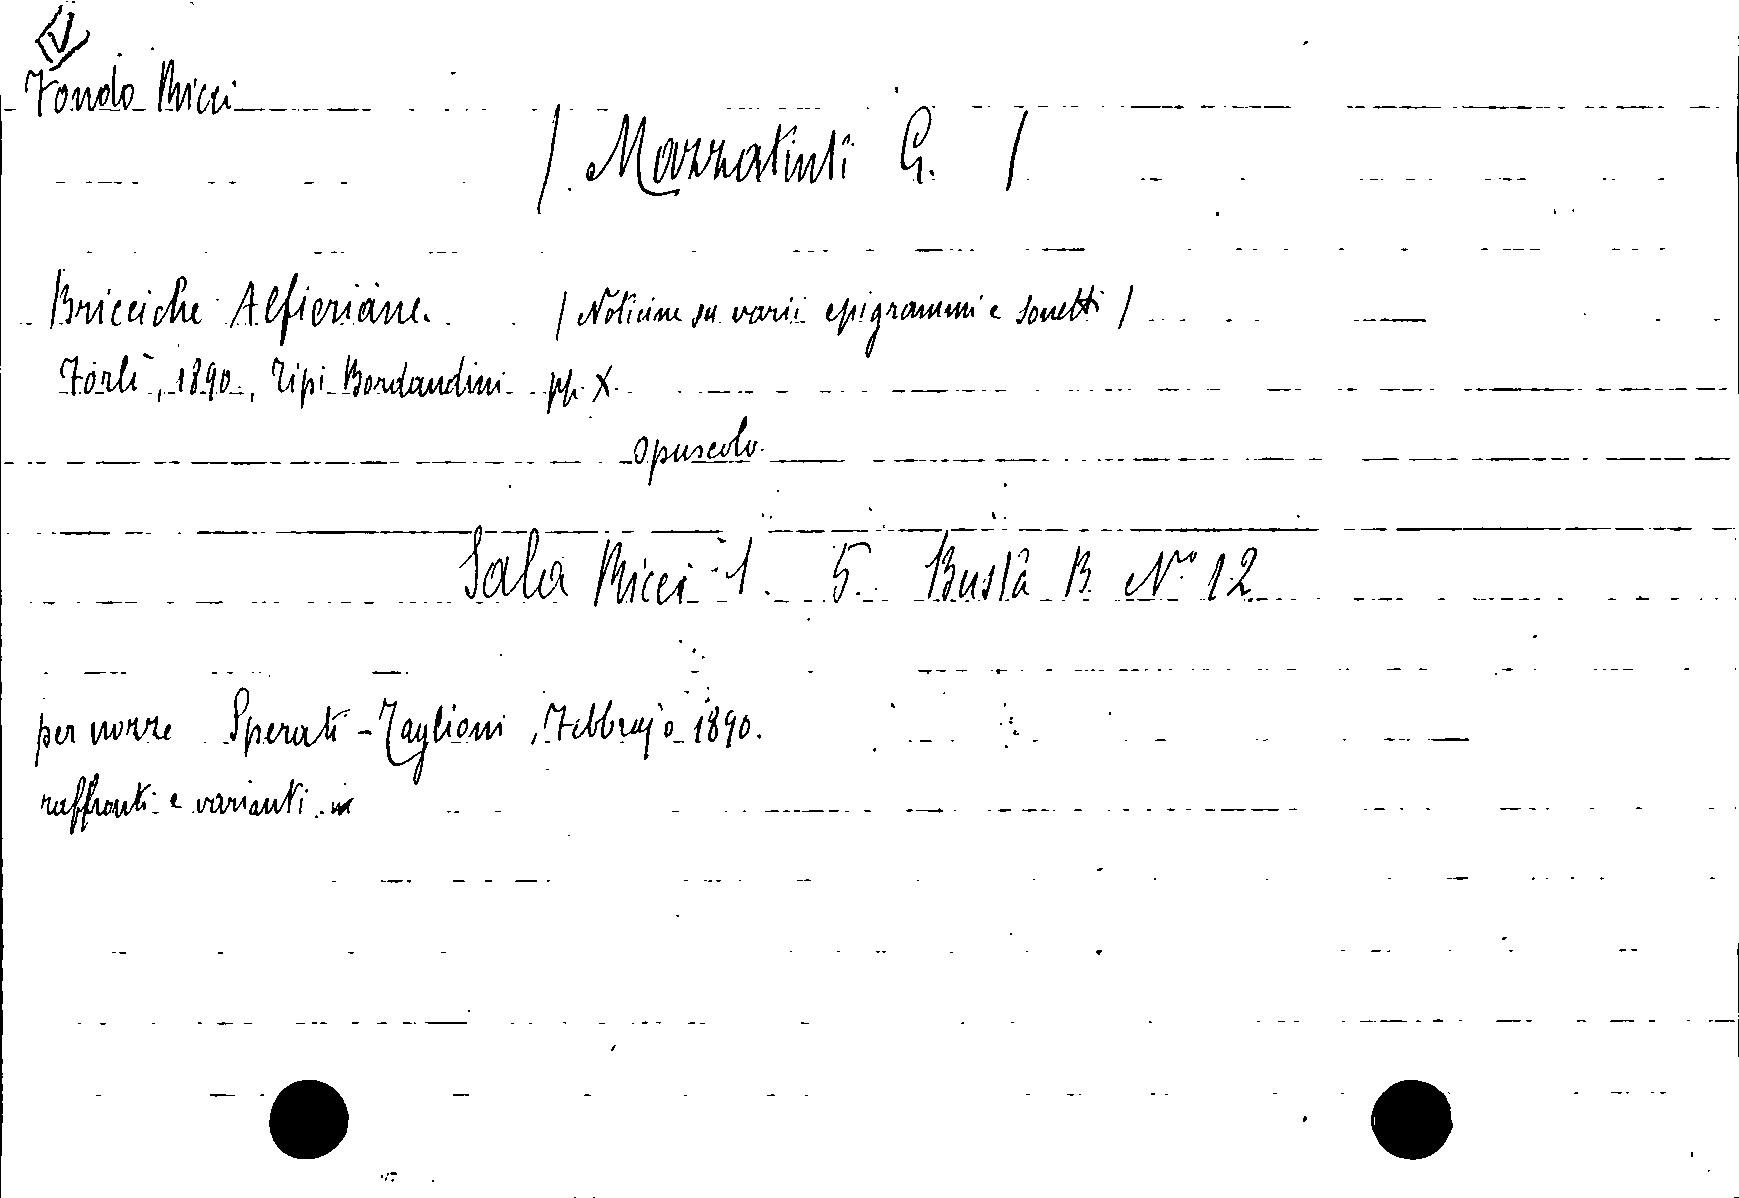 V
Fondo Ricci
/ Mazzatinti G. /
Bricciche Alfieriane. / Noticine su varii epigrammi e sonetti /
Forlì, 1890, Tipi Bordandini pp. X.
opuscolo.
Sala Ricci 1. 5. Busta B. N.° 12
per nozze Sperati-Taglioni, Febbrajo 1890.
raffronti e varianti in